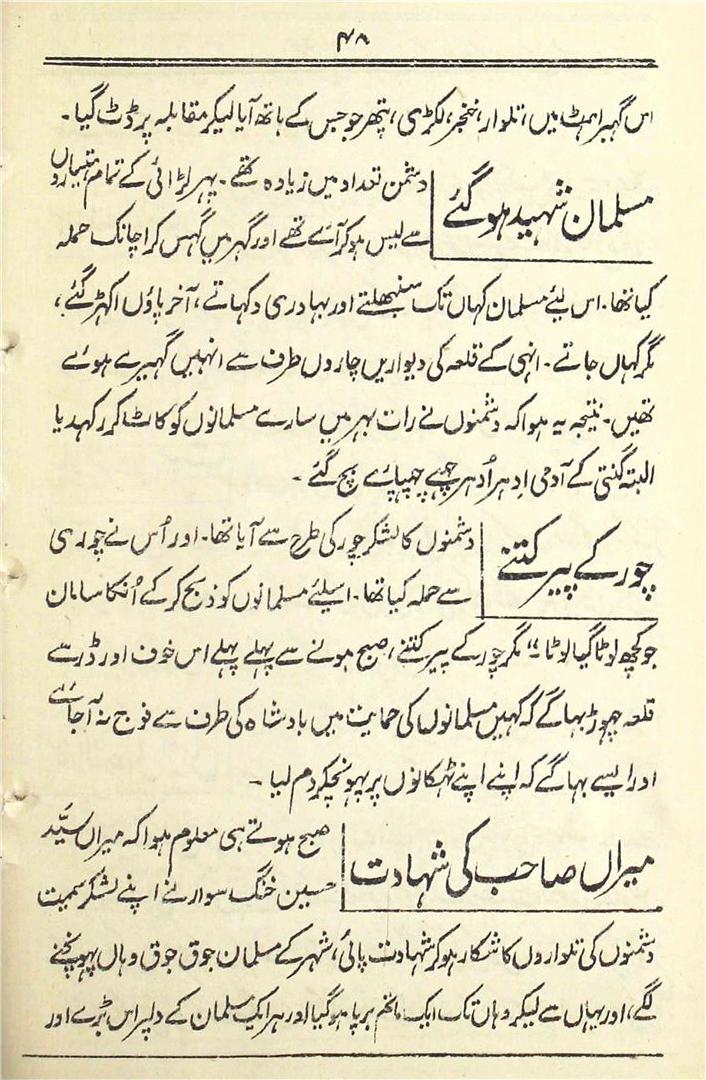 ۴۸
اس گہبراہٹ میں، تلوار، خنجر، لکڑی، پتھر جو جس کے ہاتھ آیا لیکر مقابلہ پر ڈٹ گیا۔
مسلمان شہید ہو گئے
دشمن تعداد میں زیادہ تھے۔ پہر لڑائی کے تمام ہتیاروں
سے لیس ہو کر آئے تھے اور گہر میں گہس کر اچانک حملہ
کیا تھا۔ اس لئے مسلمان کہاں تک سنبھلتے اور بہادری دکہاتے، آخر پاؤں اکہڑ گئے،
مگر کہاں جاتے۔ انہی کے قلعہ کی دیواریں چاروں طرف سے انہیں گہیرے ہوئے
تھیں۔ نتیجہ یہ ہوا کہ دشمنوں نے رات بہر میں سارے مسلمانوں کو کاٹ کر رکہدیا
البتہ گنتی کے آدمی اِدہر اُدہر چہپے چہپائے بچ گئے۔
چور کے پیر کتنے
دشمنوں کا لشکر چور کی طرح سے آیا تھا۔ اور اُس نے چوری
سے حملہ کیا تھا۔ اسلئے مسلمانوں کو ذبح کر کے اُنکا سامان
جو کچھ لوٹا گیا لوٹا۔" مگر چور کے پیر کتنے، صبح ہونے سے پہلے پہلے اس خوف اور ڈر سے
قلعہ چہوڑ بہاگے کہ کہیں مسلمانوں کی حمایت میں بادشاہ کی طرف سے فوج نہ آ جائے
اور ایسے بہاگے کہ اپنے اپنے ٹہکانوں پر پہونچکر دم لیا۔
میراں صاحب کی شہادت
صبح ہوتے ہی معلوم ہوا کہ میراں سیّد
حسین خنگ سوار نے اپنے لشکر سمیت
دشمنوں کی تلواروں کا شکار ہو کر شہادت پائی، شہر کے مسلمان جوق جوق وہاں پہونچنے
لگے، اور یہاں سے لیکر وہاں تک ایک ماتم برپا ہو گیا اور ہر ایک مسلمان کے دلپر اس بڑے اور